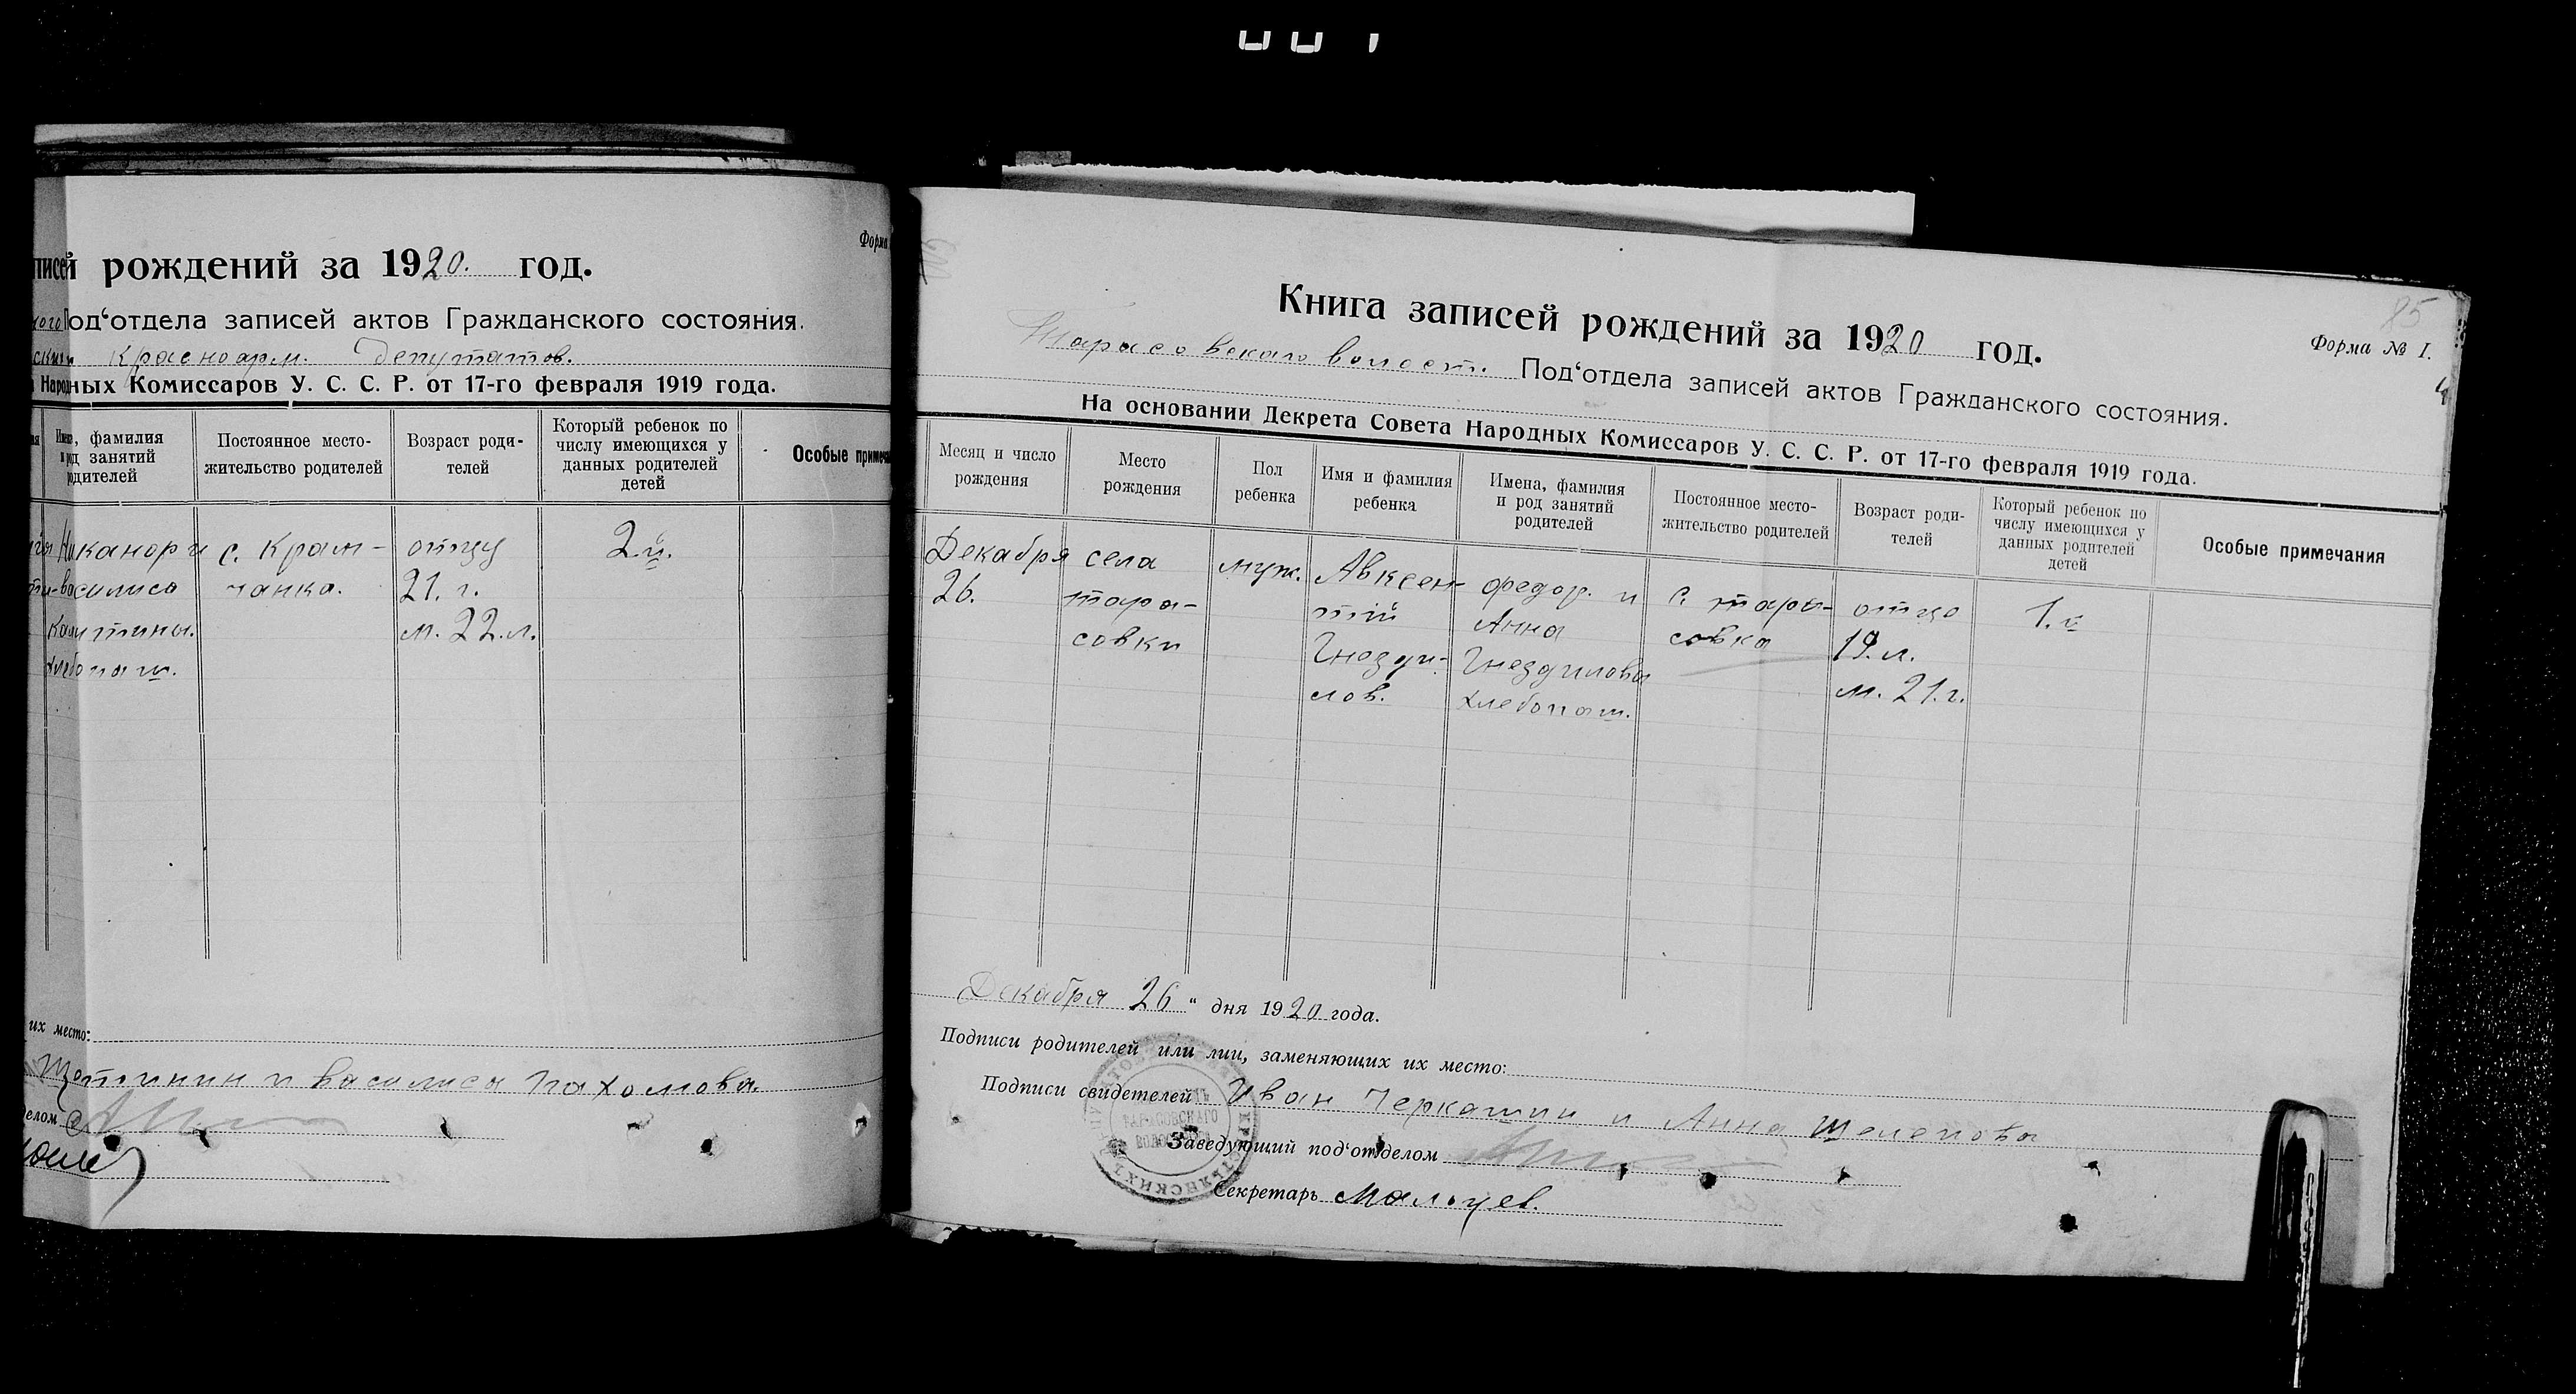 рождений за 1920. год.
Под‘отдела записей актов Гражданского состояния.
красноарм. Депутатов.
Народных Комиссаров У. С. С. Р. от 17-го февраля 1919 года.
Имена, фамилия
и род занятий
родителей
Постоянное место-
жительство родителей
Возраст роди-
телей
Который ребенок по
числу имеющихся у
данных родителей
детей
Особые
Никанор и
василиса
хлебопаш.
с. Крам-
чанка.
отцу
21. г.
м. 22. л.
2й.
их место:
и василиса Пахомова.
Форма
Книга записей рождений за 1920 год.
85
Форма № I.
Тарасовскаго волост. Под‘отдела записей актов Гражданского состояния.
На основании Декрета Совета Народных Комиссаров У. С. С. Р. от 17-го февраля 1919 года.
Месяц и число
рождения
Место
рождения
Пол
ребенка
Имя и фамилия
ребенка
Имена, фамилия
и род занятий
родителей
Постоянное место-
жительство родителей
Возраст роди-
телей
Который ребенок по
числу имеющихся у
данных родителей
детей
Особые примечания
Декабря
26.
села
тара-
совки
муж.
Авксен-
тій
Гнезди-
лов.
федор. и
Анна
Гнездиловы
хлебопаш.
с. тара-
совка
отцо
19. л.
м. 21. г.
1. й
Декабря 26 “ дня 1920 года.
Подписи родителей или лиц, заменяющих их место:
Подписи свидетелей Иван Черкашин и Анна Шелепова
Заведующий под‘отделом
Секретарь Мальцев.